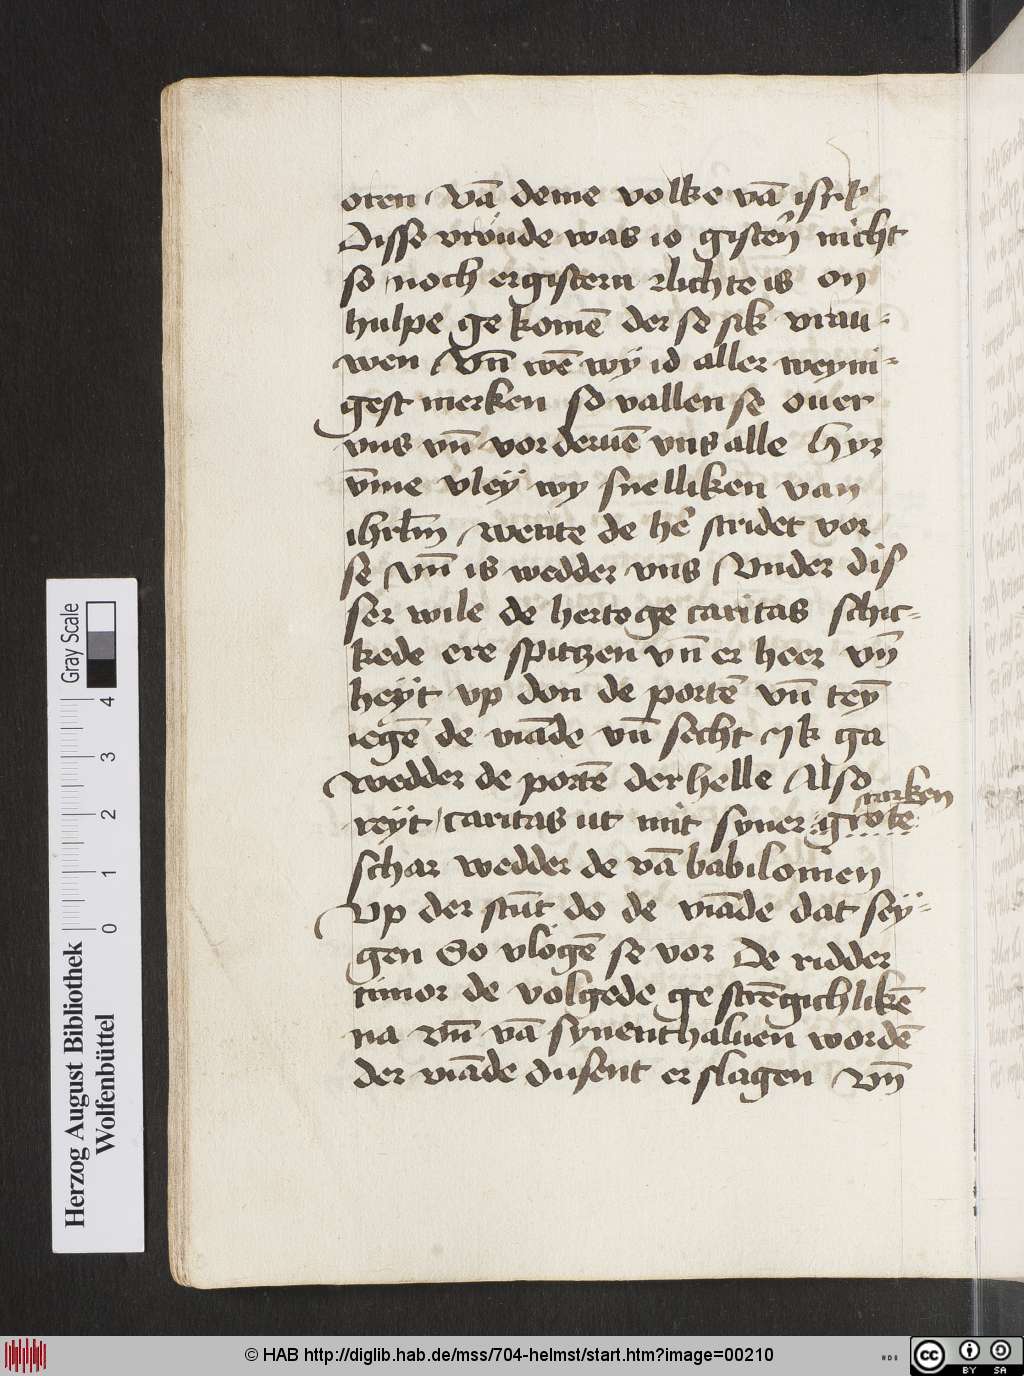 oren Vā deme volke vā isrl̄
Disse vrönde was io gisterñ nicht
so noch ergistern vlichte is on
hulpe ge komē der se sik vrau-
wen Vn̄ wē wÿ id aller weyni-
gest merken so vallen se ouer
vns vn̄ vorderuē vns alle Hyr
v̄me vleÿ wy snelliken van
ihrl̄m wente de hē stridet vor
se vn̄ is wedder vns Vnder dis
ser wile de hertoge caritas schic-
kede ere spitzen vn̄ er heer vn̄
heÿt vp don de portē vn̄ teÿ
iegē de viāde vn̄ secht Jk ga
wedder de portē der helle Also
starken
reÿt caritas ut mit syner grote
schar wedder de vā babilonien
Vp der stūt do de viāde dat seÿ-
gen So vlögē se vor De ridder
timor de volgede ge strēgichlikē
na vn̄ vā synenthaluen wordē
der viāde dusent er slagen Vn̄
Gray Scale
0 1 2 3 4
Herzog August Bibliothek
Wolfenbüttel
© HAB http://diglib.hab.de/mss/704-helmst/start.htm?image=00210
cc BY SA